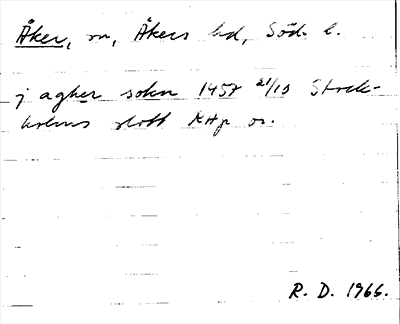 Åker, sn, Åkers hd, Söd. l.
j agher sokn 1457 21/10 Stock-
holms slott KHp or.
R. D. 1966.